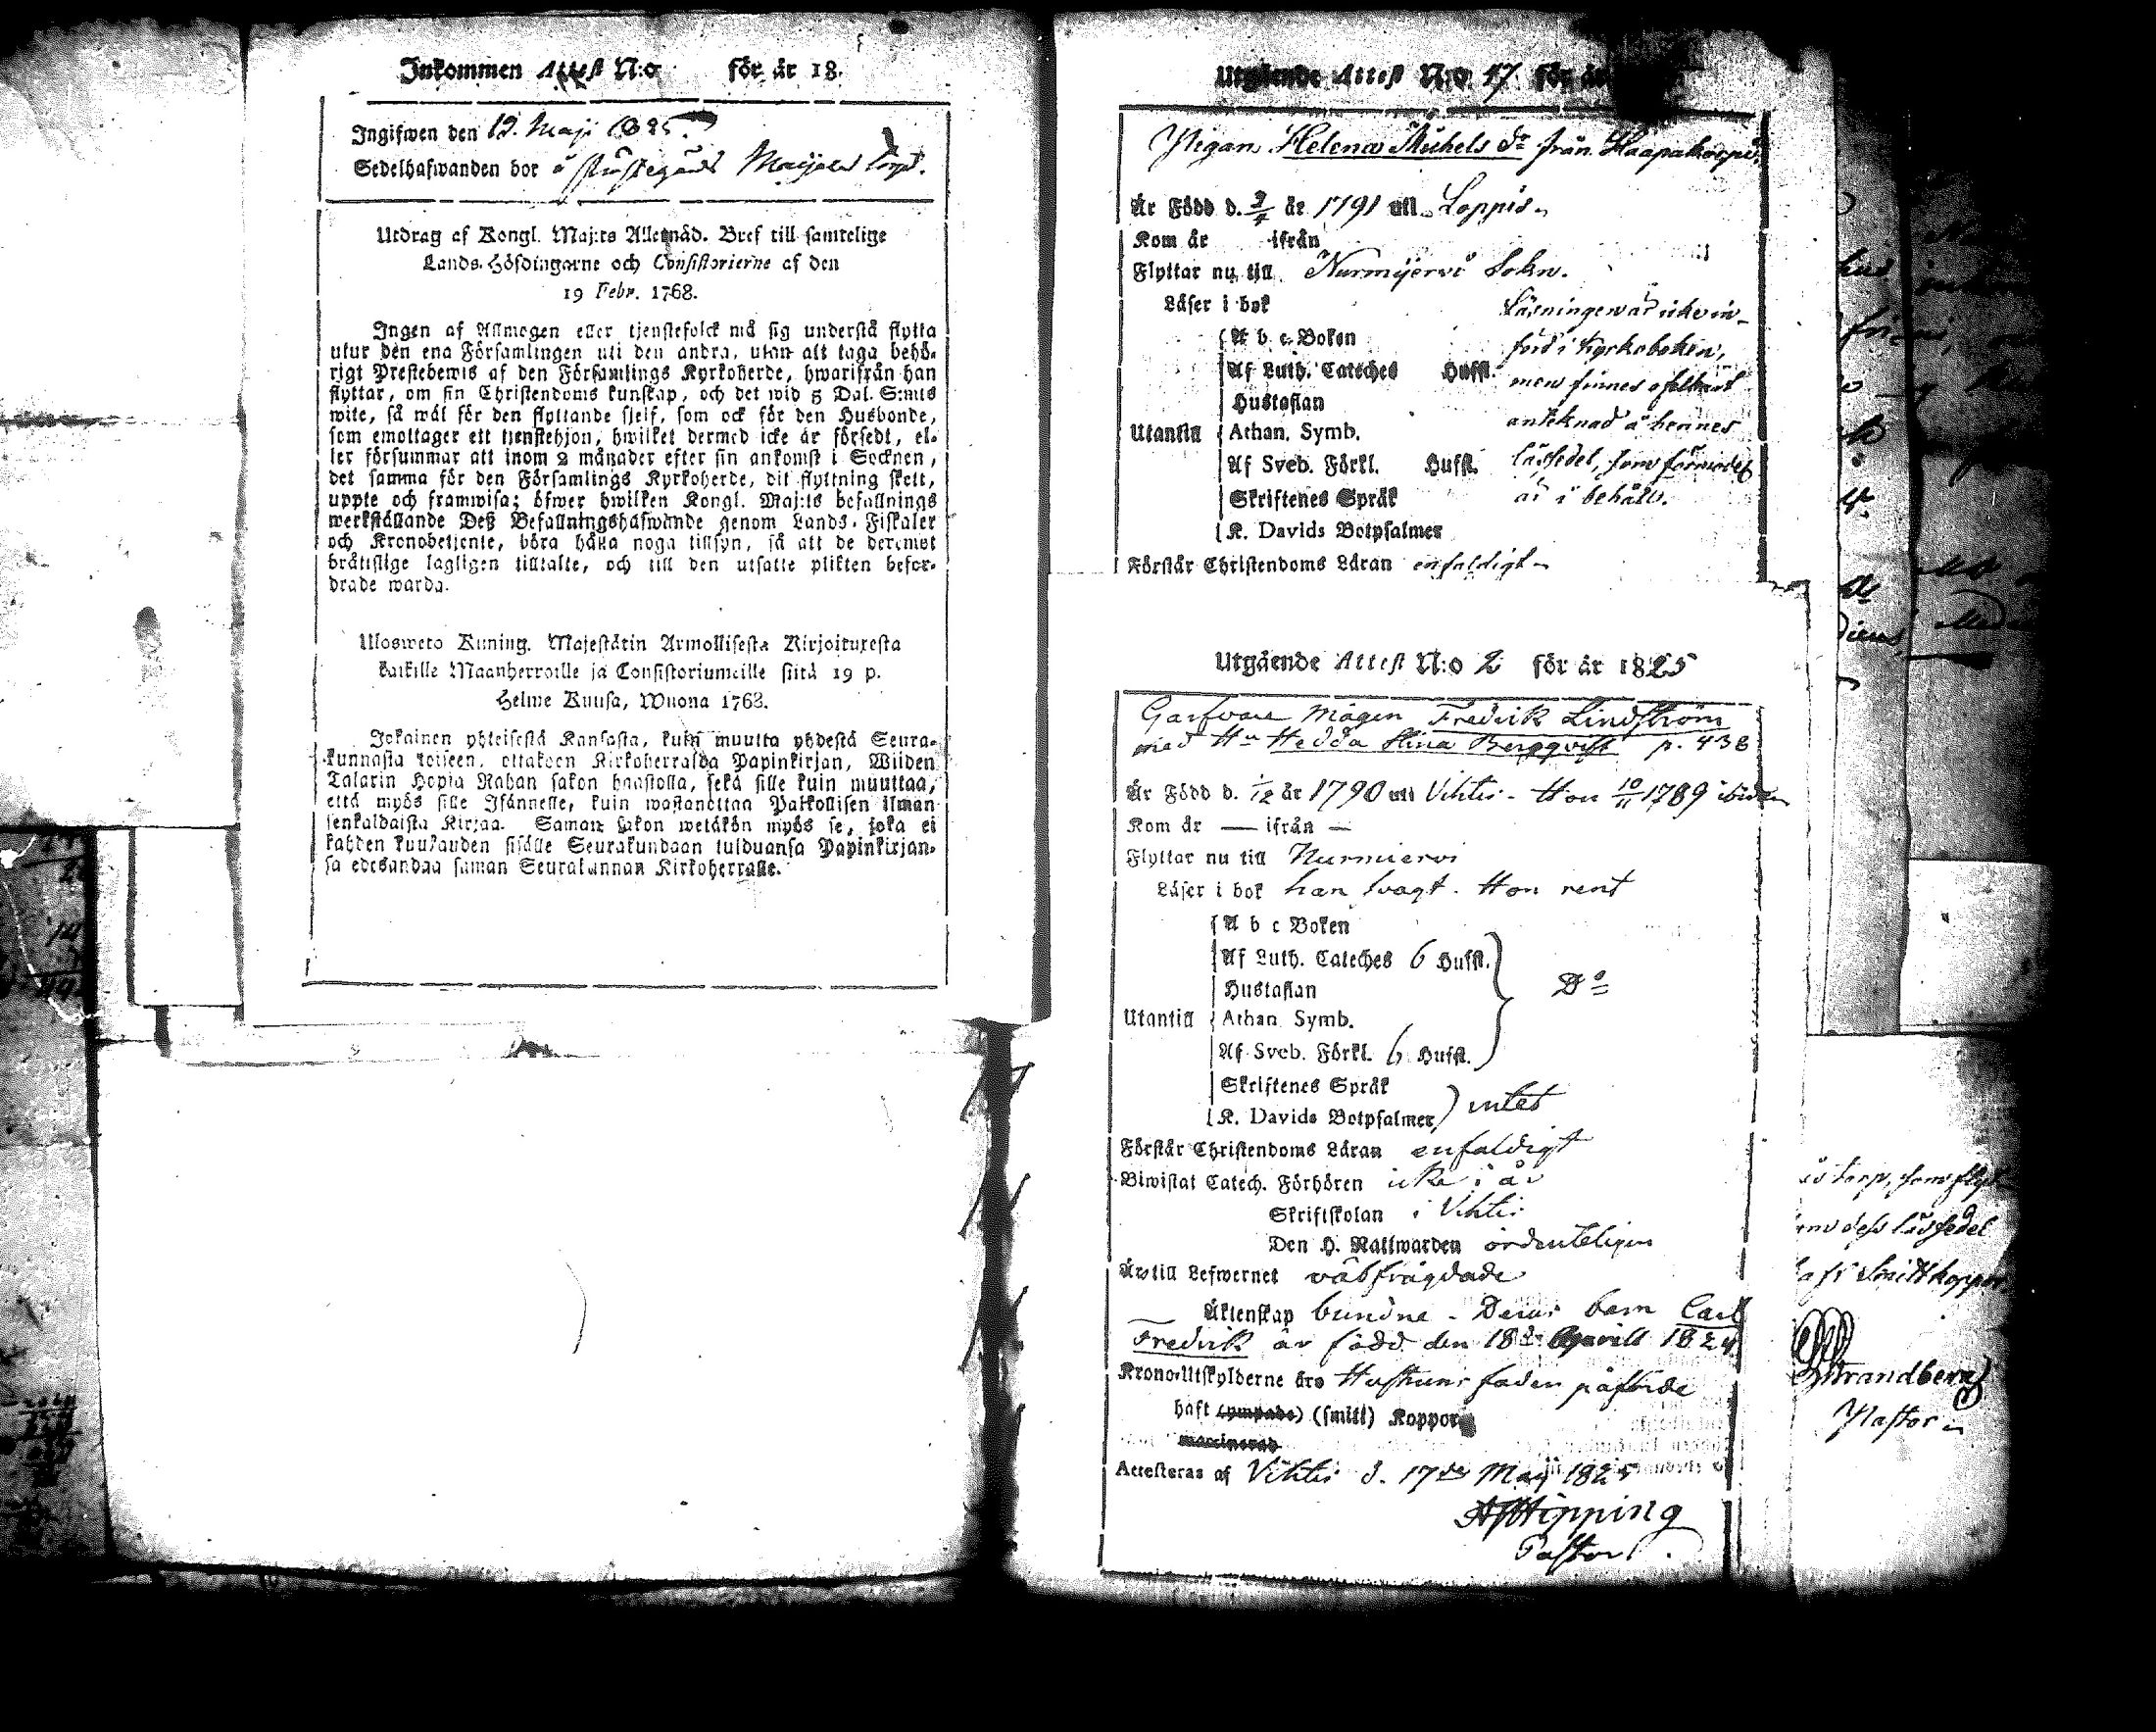 Inkommen Attest N:o för år 18.
Ingifwen den 19. Maji 1825.
Sedelhafwanden bor å
Utdrag af Kongl. Maj:ts Allernåd. Bref till samtelige
Lands-Höfdingarne och Consistorierne af den
19 Febr. 1768.
Ingen af Allmogen eller tjenstefolck må sig understå flytta
utur den ena Församlingen uti den andra, utan att taga behö-
rigt Prestebewis af den Församlings Kyrkoherde, hwarifrån han
flyttar, om sin Christendoms kunskap, och det wid 5 Dal. S:mts
wite, så wäl för den flyttande sjelf, som ock för den Husbonde,
som emottager ett tjenstehjon, hwilket dermed icke är försedt, el-
ler försummar att inom 2 månader efter sin ankomst i Socknen,
det samma för den Församlings Kyrkoherde, dit flyttning skett,
uppte och framwisa; öfwer hwilken Kongl. Maj:ts befallnings
werkställande Deß Befallningshafwande genom Lands-Fiskaler
och Kronobetjente, böra hålla noga tillsyn, så att de deremot
bråttslige lagligen tilltalte, och till den utsatte plikten befor-
drade warda.
Ulosweto Kuning. Majestätin Armollisesta Kirjoituxesta
kaikille Maanherroille ja Consistoriumeille siitä 19 p.
Helme Kuusa, Wuona 1768.
Jokainen yhteisestä Kansasta, kuin muutta yhdestä Seura-
kunnasta toiseen, ottakoon Kirkoherralda Papinkirjan, Wiiden
Talarin Hopia Rahan sakon haastolla, sekä sille kuin muuttaa,
että myös sille Isännelle, kuin wastanottaa Palkollisen ilman
senkaldaista Kirjaa. Saman sakon wetäkön myös se, joka ei
kahden kuukauden sisälle Seurakundaan tulduansa Papinkirjan-
sa edesandaa saman Seurakunnan Kirkoherralle.
Utgående Attest N:o 17 för år
Pigan Helena Michels dr från Haapakorpi
Är Född d. år 1791 uti Loppis
Kom år ifrån
Flyttar nu till Nurmijervi Sokn.
Läser i bok
Läsningen är icke in-
A b c Boken
förd i Kyrkoboken,
Af Luth. Cateches Husst.
men finnes
Hustaflan
Utantill Athan. Symb.
anteknad å hennes
Af Sveb. Förkl. Husst.
läsesedel, som förmodel.
Skriftenes Språk
är i behåll.
K. Davids Botpsalmer
Förstår Christendoms Läran enfaldigt
Utgående Attest N:o 2 för år 1825
Garfvare Mågen Fredrik Lindström
med Hu Hedda Stina Bergqvist p. 438
Är Född d. 1/12 år 1790 uti Vihtis - Hon 10/11 1789 ibidem
Kom år — ifrån —
Flyttar nu till Nurmiervi
Läser i bok han svagt. Hon rent
A b c Boken
Af Luth. Cateches 6 Husst.
Hustaflan
Do
Utantill Athan. Symb.
Af Sveb. Förkl. 6 Husst.
Skriftenes Språk
K. Davids Botpsalmer intet
Förstår Christendoms Läran enfaldigt
Biwistat Catech. Förhören icke i år
Skriftskolan i Vihtis
Den H. Nattwarden ordenteligen
Äro till Lefwernet välfrägdade
Äktenskap bundne - Deras barn Carl
Fredrik är född den 18de Aprill 1824
Krono-Utskylderne äro Hustruns fader påförde
haft (ympade) (smitt) Koppor
vaccinerad
Attesteras af Vihtis d. 17de Maij 1825
Hipping
Pastor.
torp, som flyt
dess läsesedel
Smittkoppor
Strandberg
Pastor